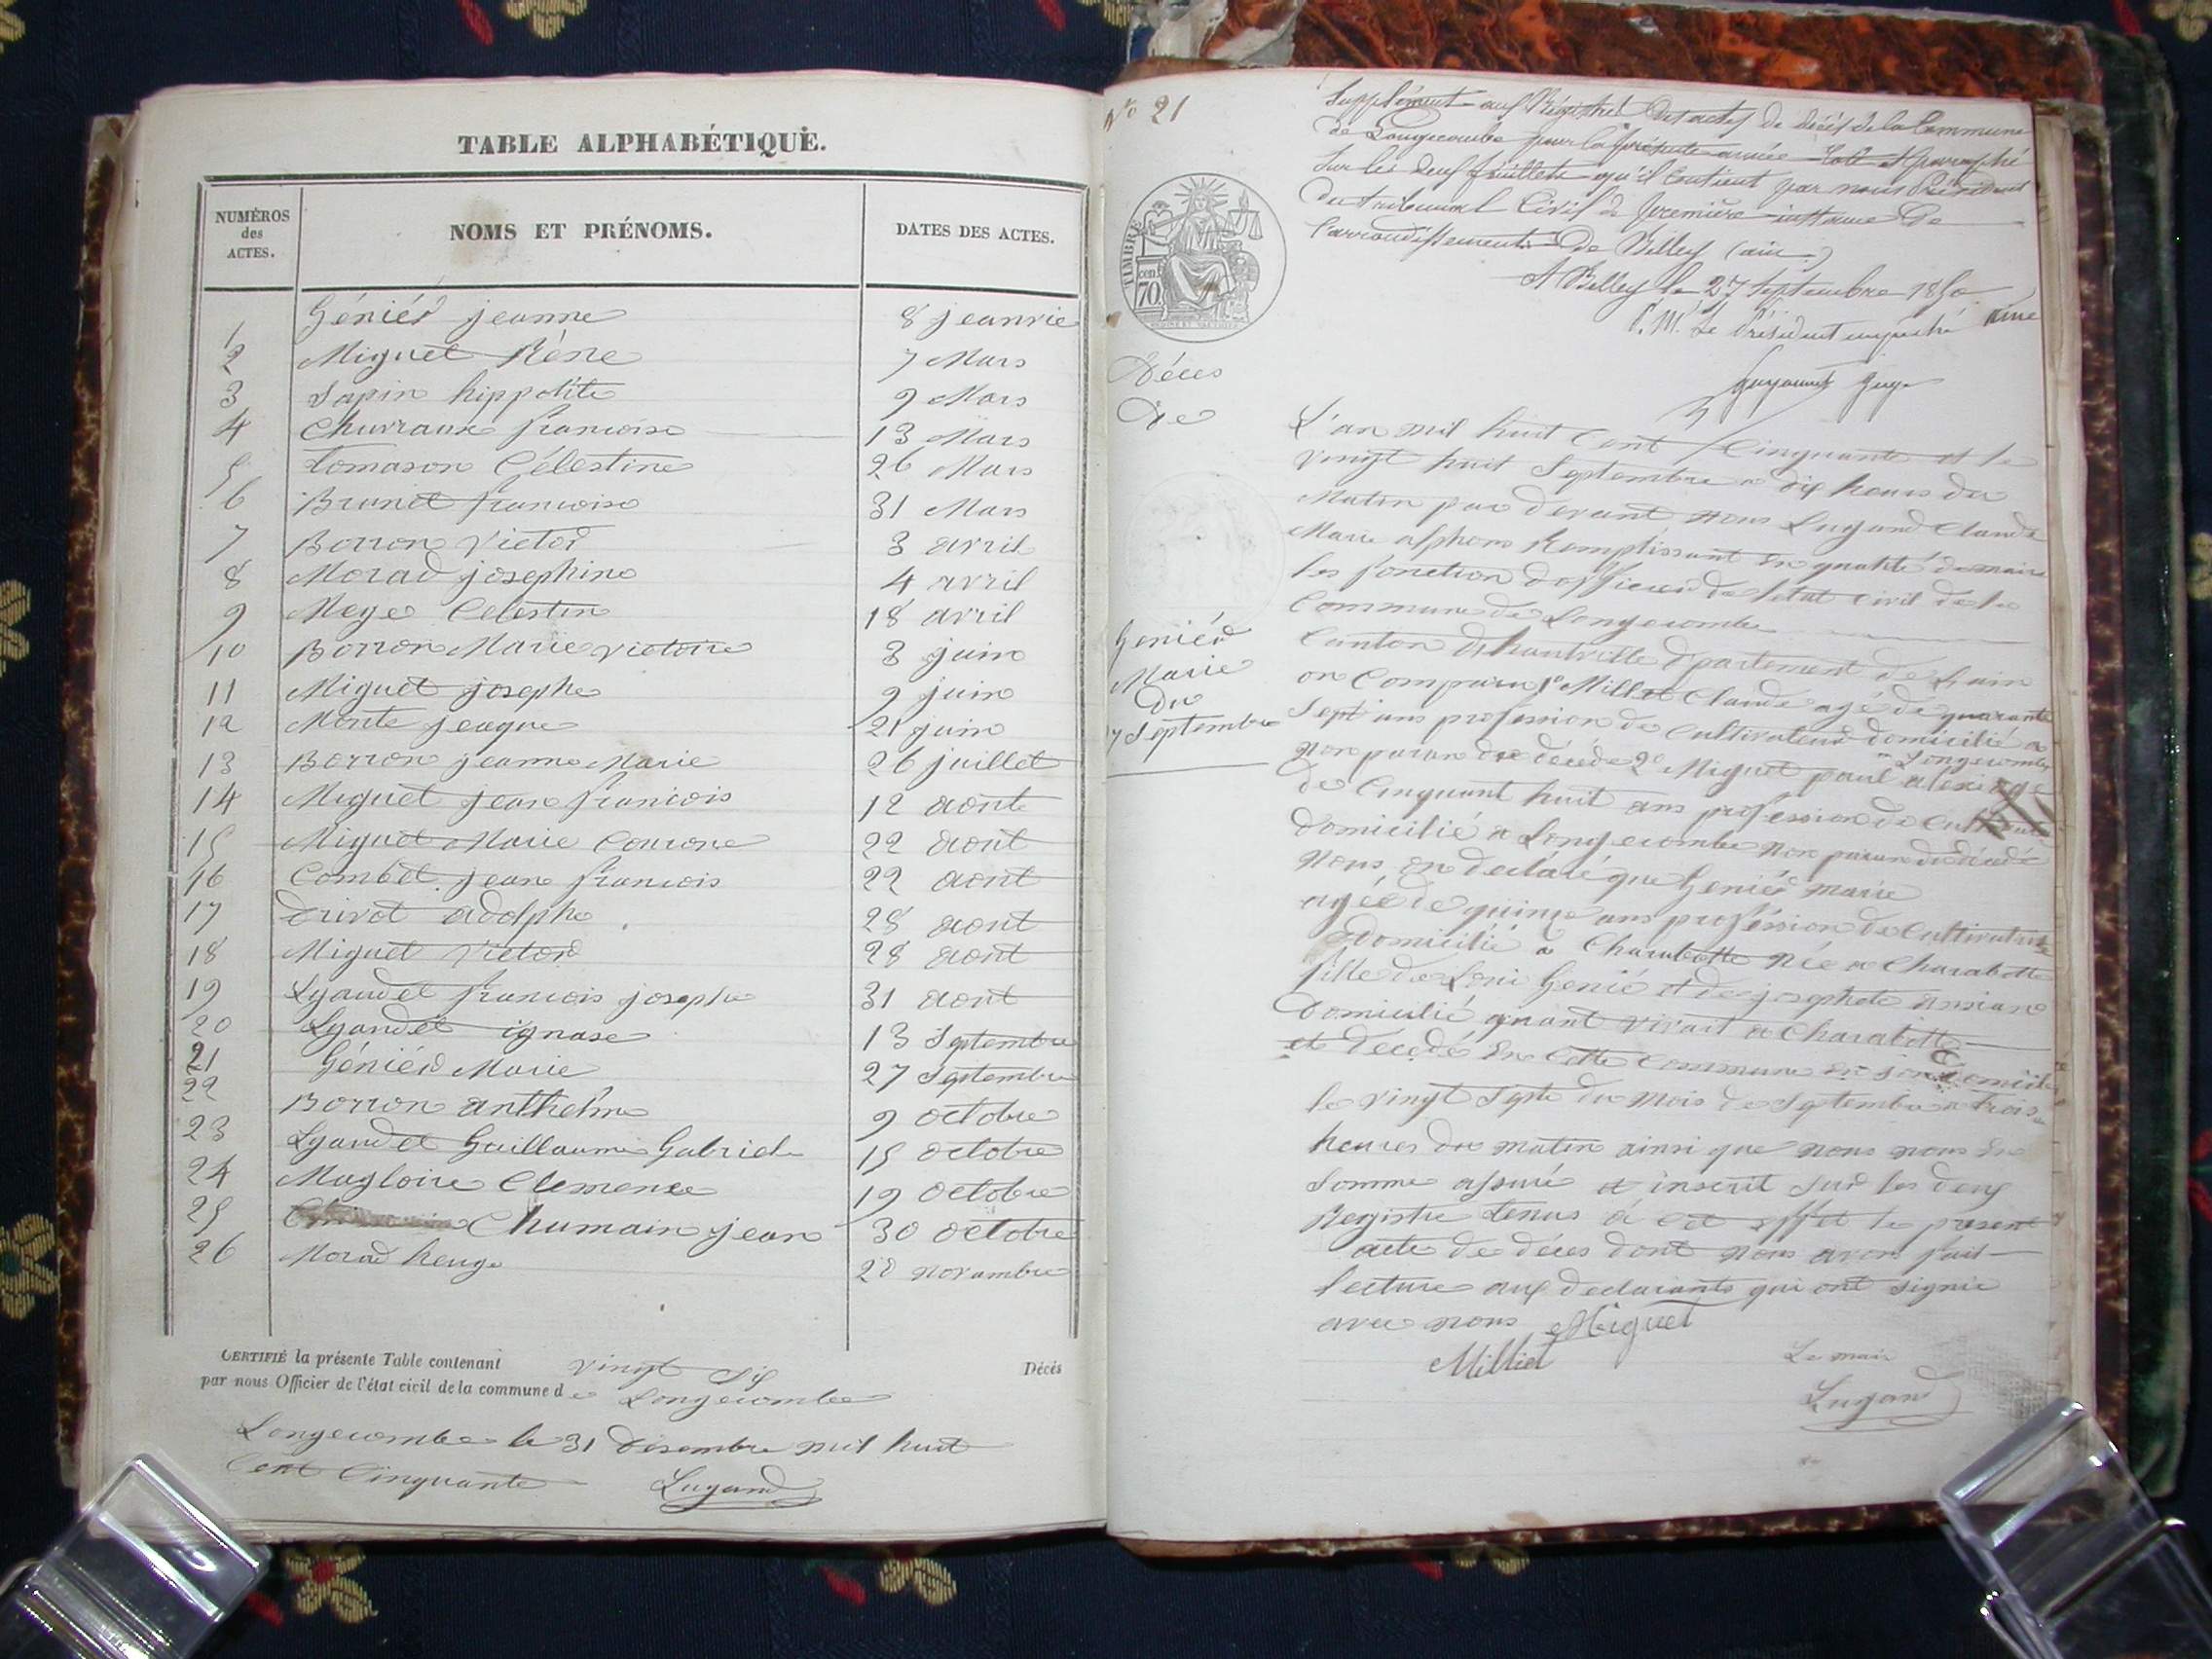 TABLE ALPHABÉTIQUE.
NUMÉROS des ACTES.
NOMS ET PRÉNOMS.
DATES DES ACTES.
1 Géniér jeanne 8 jeanvie
2 Miguet Réne 7 Mars
3 Sapin hippolite 9 Mars
4 francoise 13 Mars
5 tomason Célestine 26 Mars
6 Brunet francoise 31 Mars
7 Borron Victor 3 avril
8 Morad josephine 4 avril
9 Meye Celestin 18 avril
10 Borron Marie victoire 3 juin
11 Miguet josephe 9 juin
12 Monte jeaque 21 juin
13 Borron jeanne Marie 26 juillet
14 Miguet jean francois 12 aont
15 Miguet Marie Courone 22 aont
16 Combet jean francois 22 aont
17 Drivot adolphe 28 aont
18 Miguet Victor 28 aont
19 Lyaudet francois josephe 31 aont
20 Lyaudet ignase 13 Septembre
21 Géniér Marie 27 Septembre
22 Borron anthelme 9 octobre
23 Lyaudet Guillaume Gabriel 15 octobre
24 Magloire Clemense 19 octobre
25 Chumain jean 30 octobre
26 Morad 28 novembre
CERTIFIÉ la présente Table contenant vingt six Décès
par nous Officier de l'état civil de la commune de Longecombe
Longecombe le 31 Desembre mil huit
Cent Cinquante Lugand
No 21
Supplément aux Régistres des actes de décès de la Commune
de Longecombe pour la présente année Coté et paraphé
sur les deux feuillets qu'il contient par nous Président
du tribunal Civil de première instance de
l'arrondissement de Belley (ain)
A Belley le 27 Septembre 1850
P. M. Le Président empêché
juge
TIMBRE
70 cent
Déces
De
Geniér
Marie
Du
27 Septembre
L'an mil huit Cent Cinquante et le
vingt huit Septembre a dix heures du
Matin par devant nous Lugand Claude
Marie alphons Remplissant en qualité de maire
les fonction d'officier de letat civil de la
Commune de Longecombe
Canton d'hauteville département de Lain
on Comparu 1o Milliet Claude agé de quarante
Sept ans profession de Cultivateur domicilié a
Longecombe
non paran du décéde 2e Miguet paul alexi age
de Cinquant huit ans profession de Cultivateur
Domicilié a Longecombe non paran du décédé
Nous on declaré que Geniér marie
agée de quinze ans profession de Cultivatrice
domicilié a Charabotte née a Charabotte
fille de Loui Genié et de josephete
Domicilié quant vivait a Charabotte
et décédé en Cette Commune en son domicile
le vingt Septe du mois de Septembre a trois
heures du matin ainsi que nous nous en
Somme assuré et inscrit sur les deux
Registre tenus a cet effet le present
acte de déces dont nous avons fait
lecture aux declarants qui ont signié
avec nous Miguet
Milliet
Le mair
Lugand